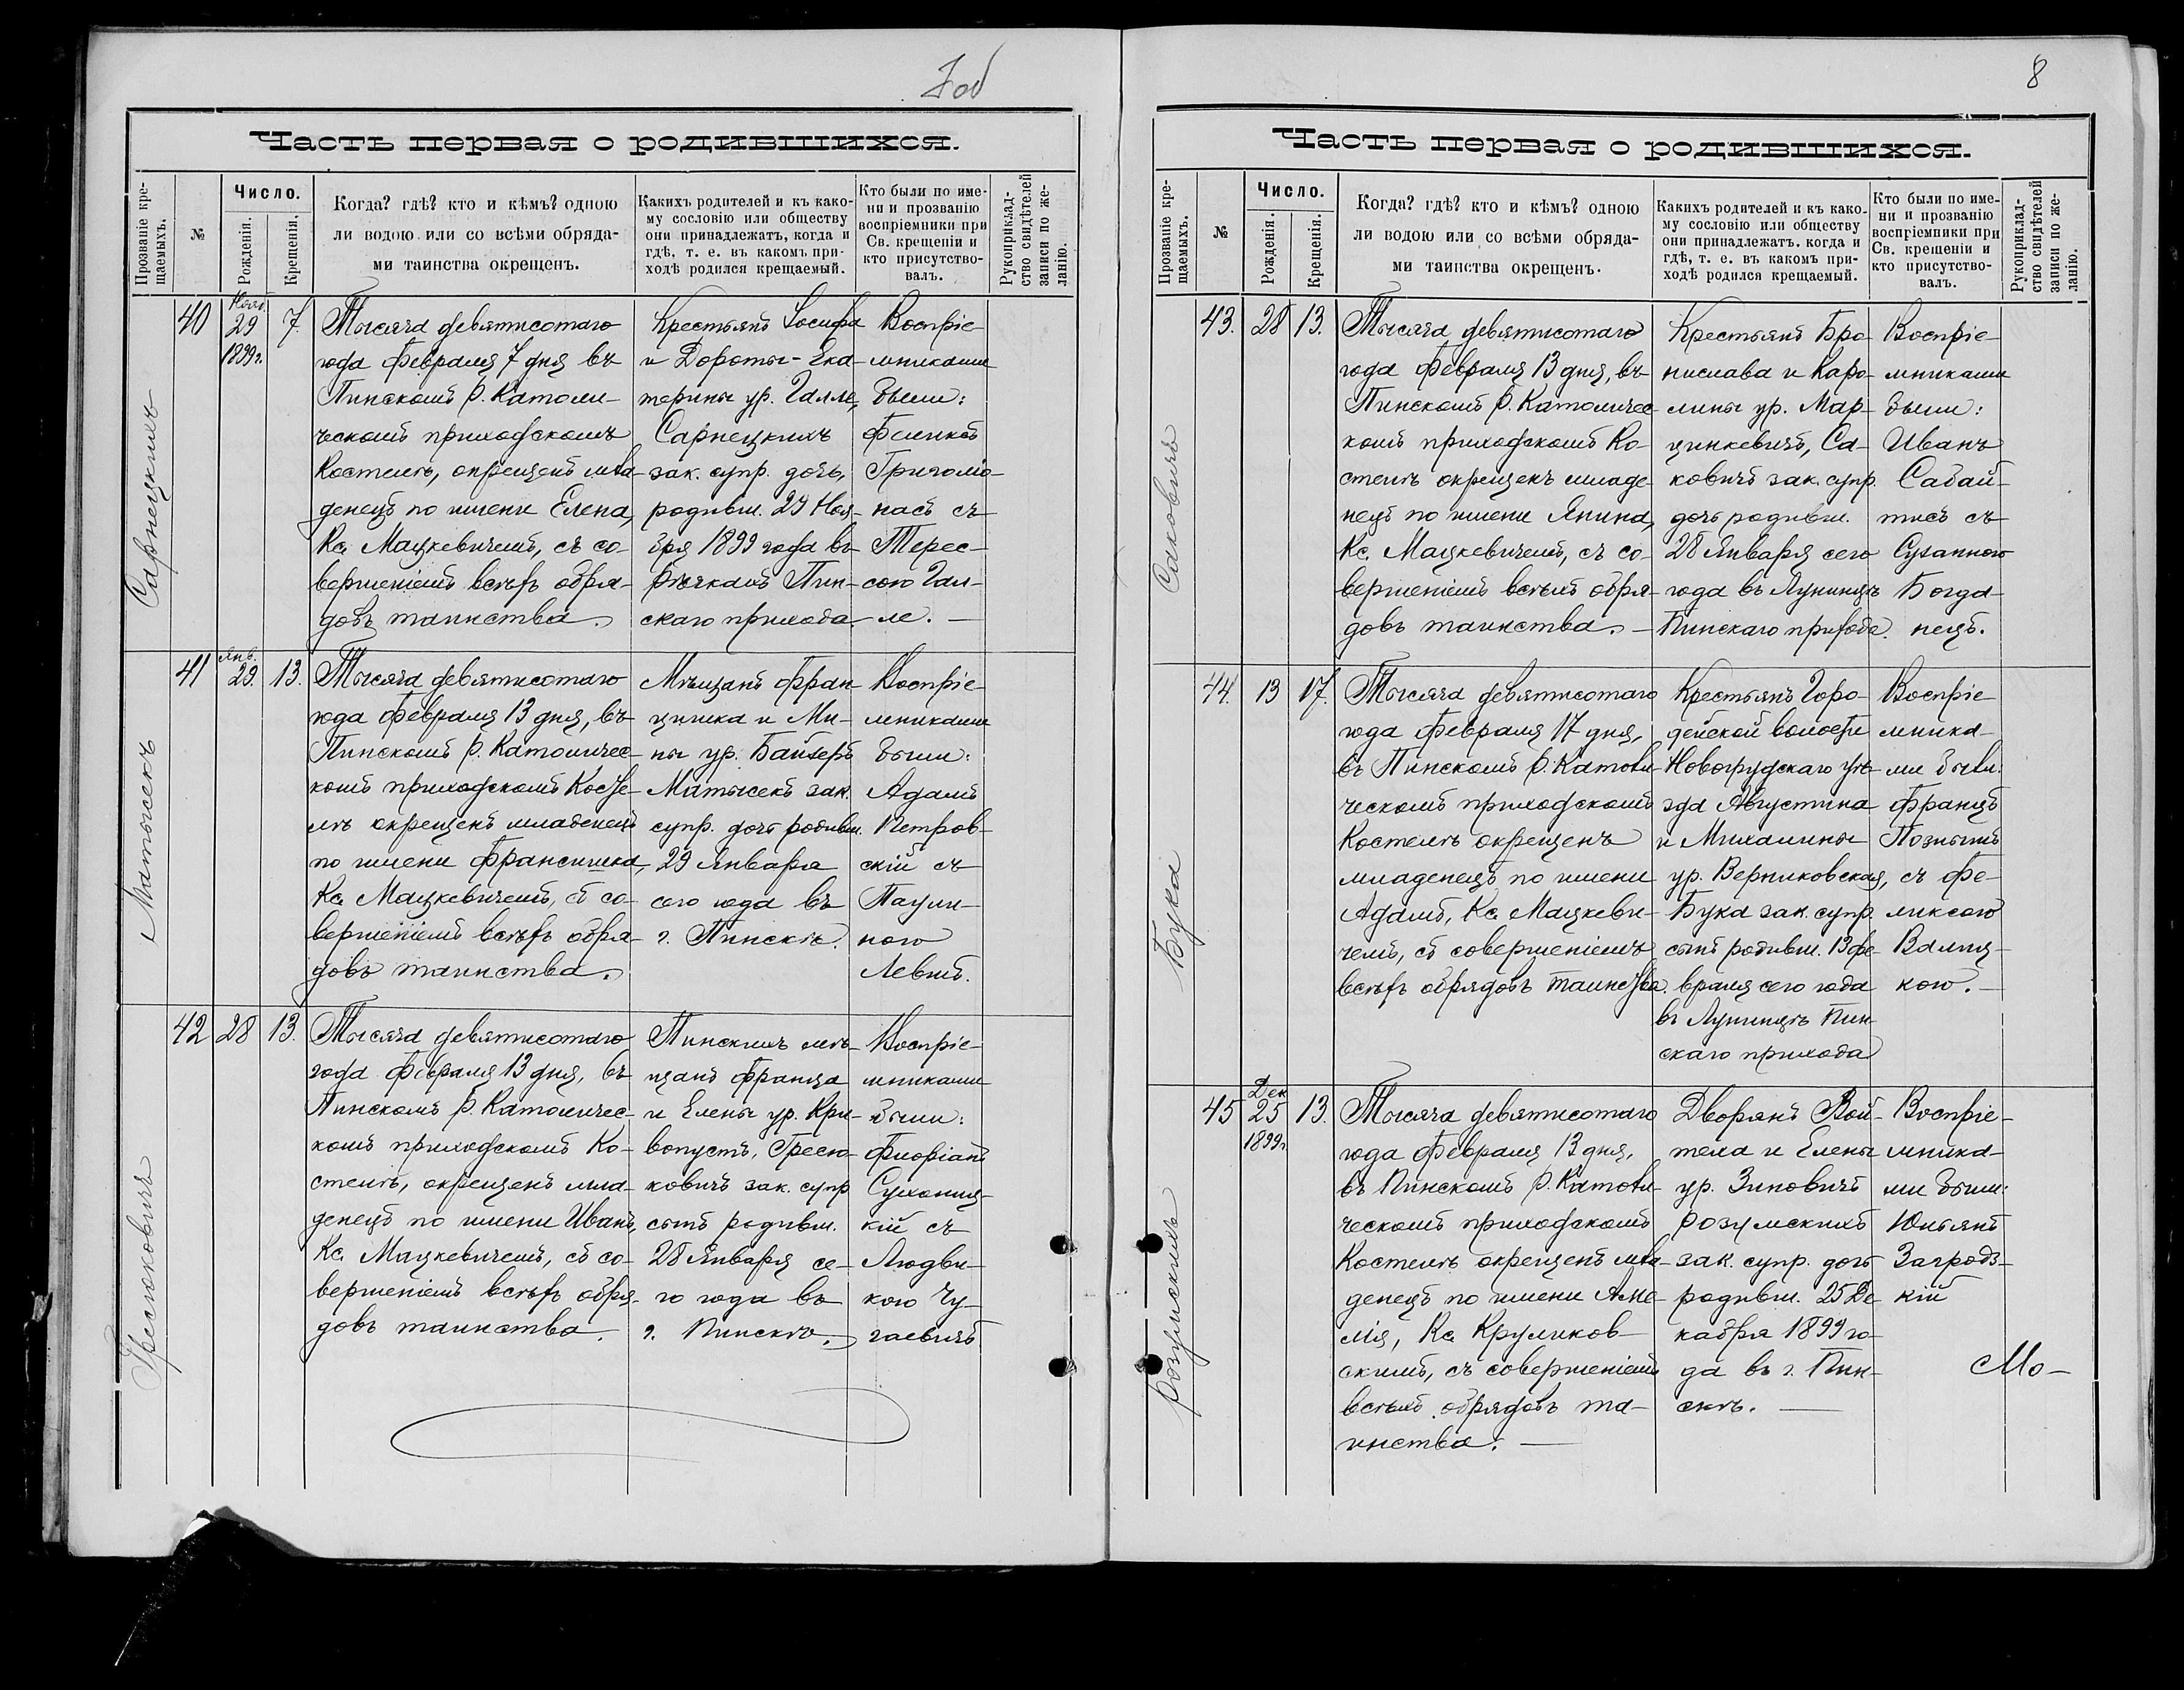 7об
Часть первая о родившихся.
Прозваніе кре-
щаемыхъ.
№
Число.
Рожденія.
Крещенія.
Когда? гдѣ? кто и кѣмъ? одною
ли водою или со всѣми обряда-
ми таинства окрещенъ.
Какихъ родителей и къ како-
му сословію или обществу
они принадлежатъ, когда и
гдѣ, т. е. въ какомъ при-
ходѣ родился крещаемый.
Кто были по име-
ни и прозванію
воспріемники при
Св. крещеніи и
кто присутство-
валъ.
Рукоприклад-
ство свидѣтелей
записи по же-
ланію.
Сарнецкихъ
40
Нояб.
29
1899 г.
7.
Тысяча девятисотаго
года Февраля 7 дня въ
Пинскомъ Р. Католи-
ческомъ приходскомъ
Костелѣ, окрещенъ мла-
денецъ по имени Елена,
Кс. Мацкевичемъ, съ со-
вершеніемъ всѣхъ обря-
довъ таинства.
Крестьянъ Іосифа
и Дороты-Ека-
терины ур. Галле,
Сарнецкихъ
зак. супр. дочь,
родивш. 29 Ноя-
бря 1899 года въ
Рѣчкахъ Пин-
скаго прихода
Воспріе-
мниками
были:
Феликсъ
Григоліо-
насъ съ
Терес-
сою Гал-
ле. —
Матысекъ
41
Янв.
29.
13.
Тысяча девятисотаго
года Февраля 13 дня, въ
Пинскомъ Р. Католичес-
комъ приходскомъ Косте-
лѣ окрещенъ младенецъ
по имени Франсишка,
Кс. Мацкевичемъ, съ со-
вершеніемъ всѣхъ обря-
довъ таинства.
Мѣщанъ Фран-
цишка и Ми-
ны ур. Байзеръ
Матысекъ зак.
супр. дочь родивш.
29 Января
сего года въ
г. Пинскѣ.
Воспріе-
мниками
были:
Адамъ
Петров-
скій съ
Паули-
ною
Левит.
Гресюковичъ
42
28
13.
Тысяча девятисотаго
года Февраля 13 дня, въ
Пинскомъ Р. Католичес-
комъ приходскомъ Ко-
стелѣ, окрещенъ мла-
денецъ по имени Иванъ,
Кс. Мацкевичемъ, съ со-
вершеніемъ всѣхъ обря-
довъ таинства.
Пинскихъ мѣ-
щанъ Франца
и Елены ур. Кри-
вопустъ, Гресю-
ковичъ зак. супр
сынъ родивш.
28 Января се-
го года въ
г. Пинскѣ.
Воспріе-
мниками
были:
Флоріанъ
Сухониц-
кій съ
Людви-
кою Чу-
гаевичъ
8
Часть первая о родившихся.
Прозваніе кре-
щаемыхъ.
№
Число.
Рожденія.
Крещенія.
Когда? гдѣ? кто и кѣмъ? одною
ли водою или со всѣми обряда-
ми таинства окрещенъ.
Какихъ родителей и къ како-
му сословію или обществу
они принадлежатъ. когда и
гдѣ, т. е. въ какомъ при-
ходѣ родился крещаемый.
Кто были по име-
ни и прозванію
воспріемники при
Св. крещеніи и
кто присутство-
валъ.
Рукоприклад-
ство свидѣтелей
записи по же-
ланію.
Саковичъ
43.
28
13.
Тысяча девятисотаго
года Февраля 13 дня, въ
Пинскомъ Р. Католичес
комъ приходскомъ Ко-
стелѣ окрещенъ младе-
нецъ по имени Янина,
Кс. Мацкевичемъ, съ со-
вершеніемъ всѣхъ обря-
довъ таинства. —
Крестьянъ Бро-
нислава и Каро-
лины ур. Мар-
цинкевичъ, Са-
ковичъ зак. супр.
дочь родивш.
28 Января сего
года въ Лунинцѣ
Пинскаго прихода.
Воспріе-
мниками
были:
Иванъ
Сабай-
тисъ съ
Сузанною
Богда-
нецъ.
Бука
44.
13
17.
Тысяча девятисотаго
года Февраля 17 дня,
въ Пинскомъ Р. Католи-
ческомъ приходскомъ
Костелѣ окрещенъ
младенецъ по имени
Адамъ, Кс. Мацкеви-
чемъ, съ совершеніемъ
всѣхъ обрядовъ таинства.
Крестьянъ Горо-
дейской волости
Новогрудскаго уѣ-
зда Августина
и Михалины
ур. Верниковская,
Бука зак. супр.
сынъ родивш. 13 Фе-
враля сего года
въ Лунинцѣ Пин-
скаго прихода
Воспріе-
мника-
ми были:
Францъ
Познымъ
съ Фе-
ликсою
Валиц-
кою. —
Розумскихъ
45
Дек
25
1899 г.
13.
Тысяча девятисотаго
года Февраля 13 дня,
въ Пинскомъ Р. Католи-
ческомъ приходскомъ
Костелѣ окрещенъ мла-
денецъ по имени Аме-
лія, Кс. Круликов-
скимъ, съ совершеніемъ
всѣхъ обрядовъ та-
инства. —
Дворянъ Вой-
теха и Елены
ур. Зиновичъ
Розумскихъ
зак. супр. дочь
родивш. 25 Де-
кабря 1899 го-
да въ г. Пин-
скѣ. —
Воспріе-
мника-
ми были:
Юльянъ
Загродз-
кій
Мо-